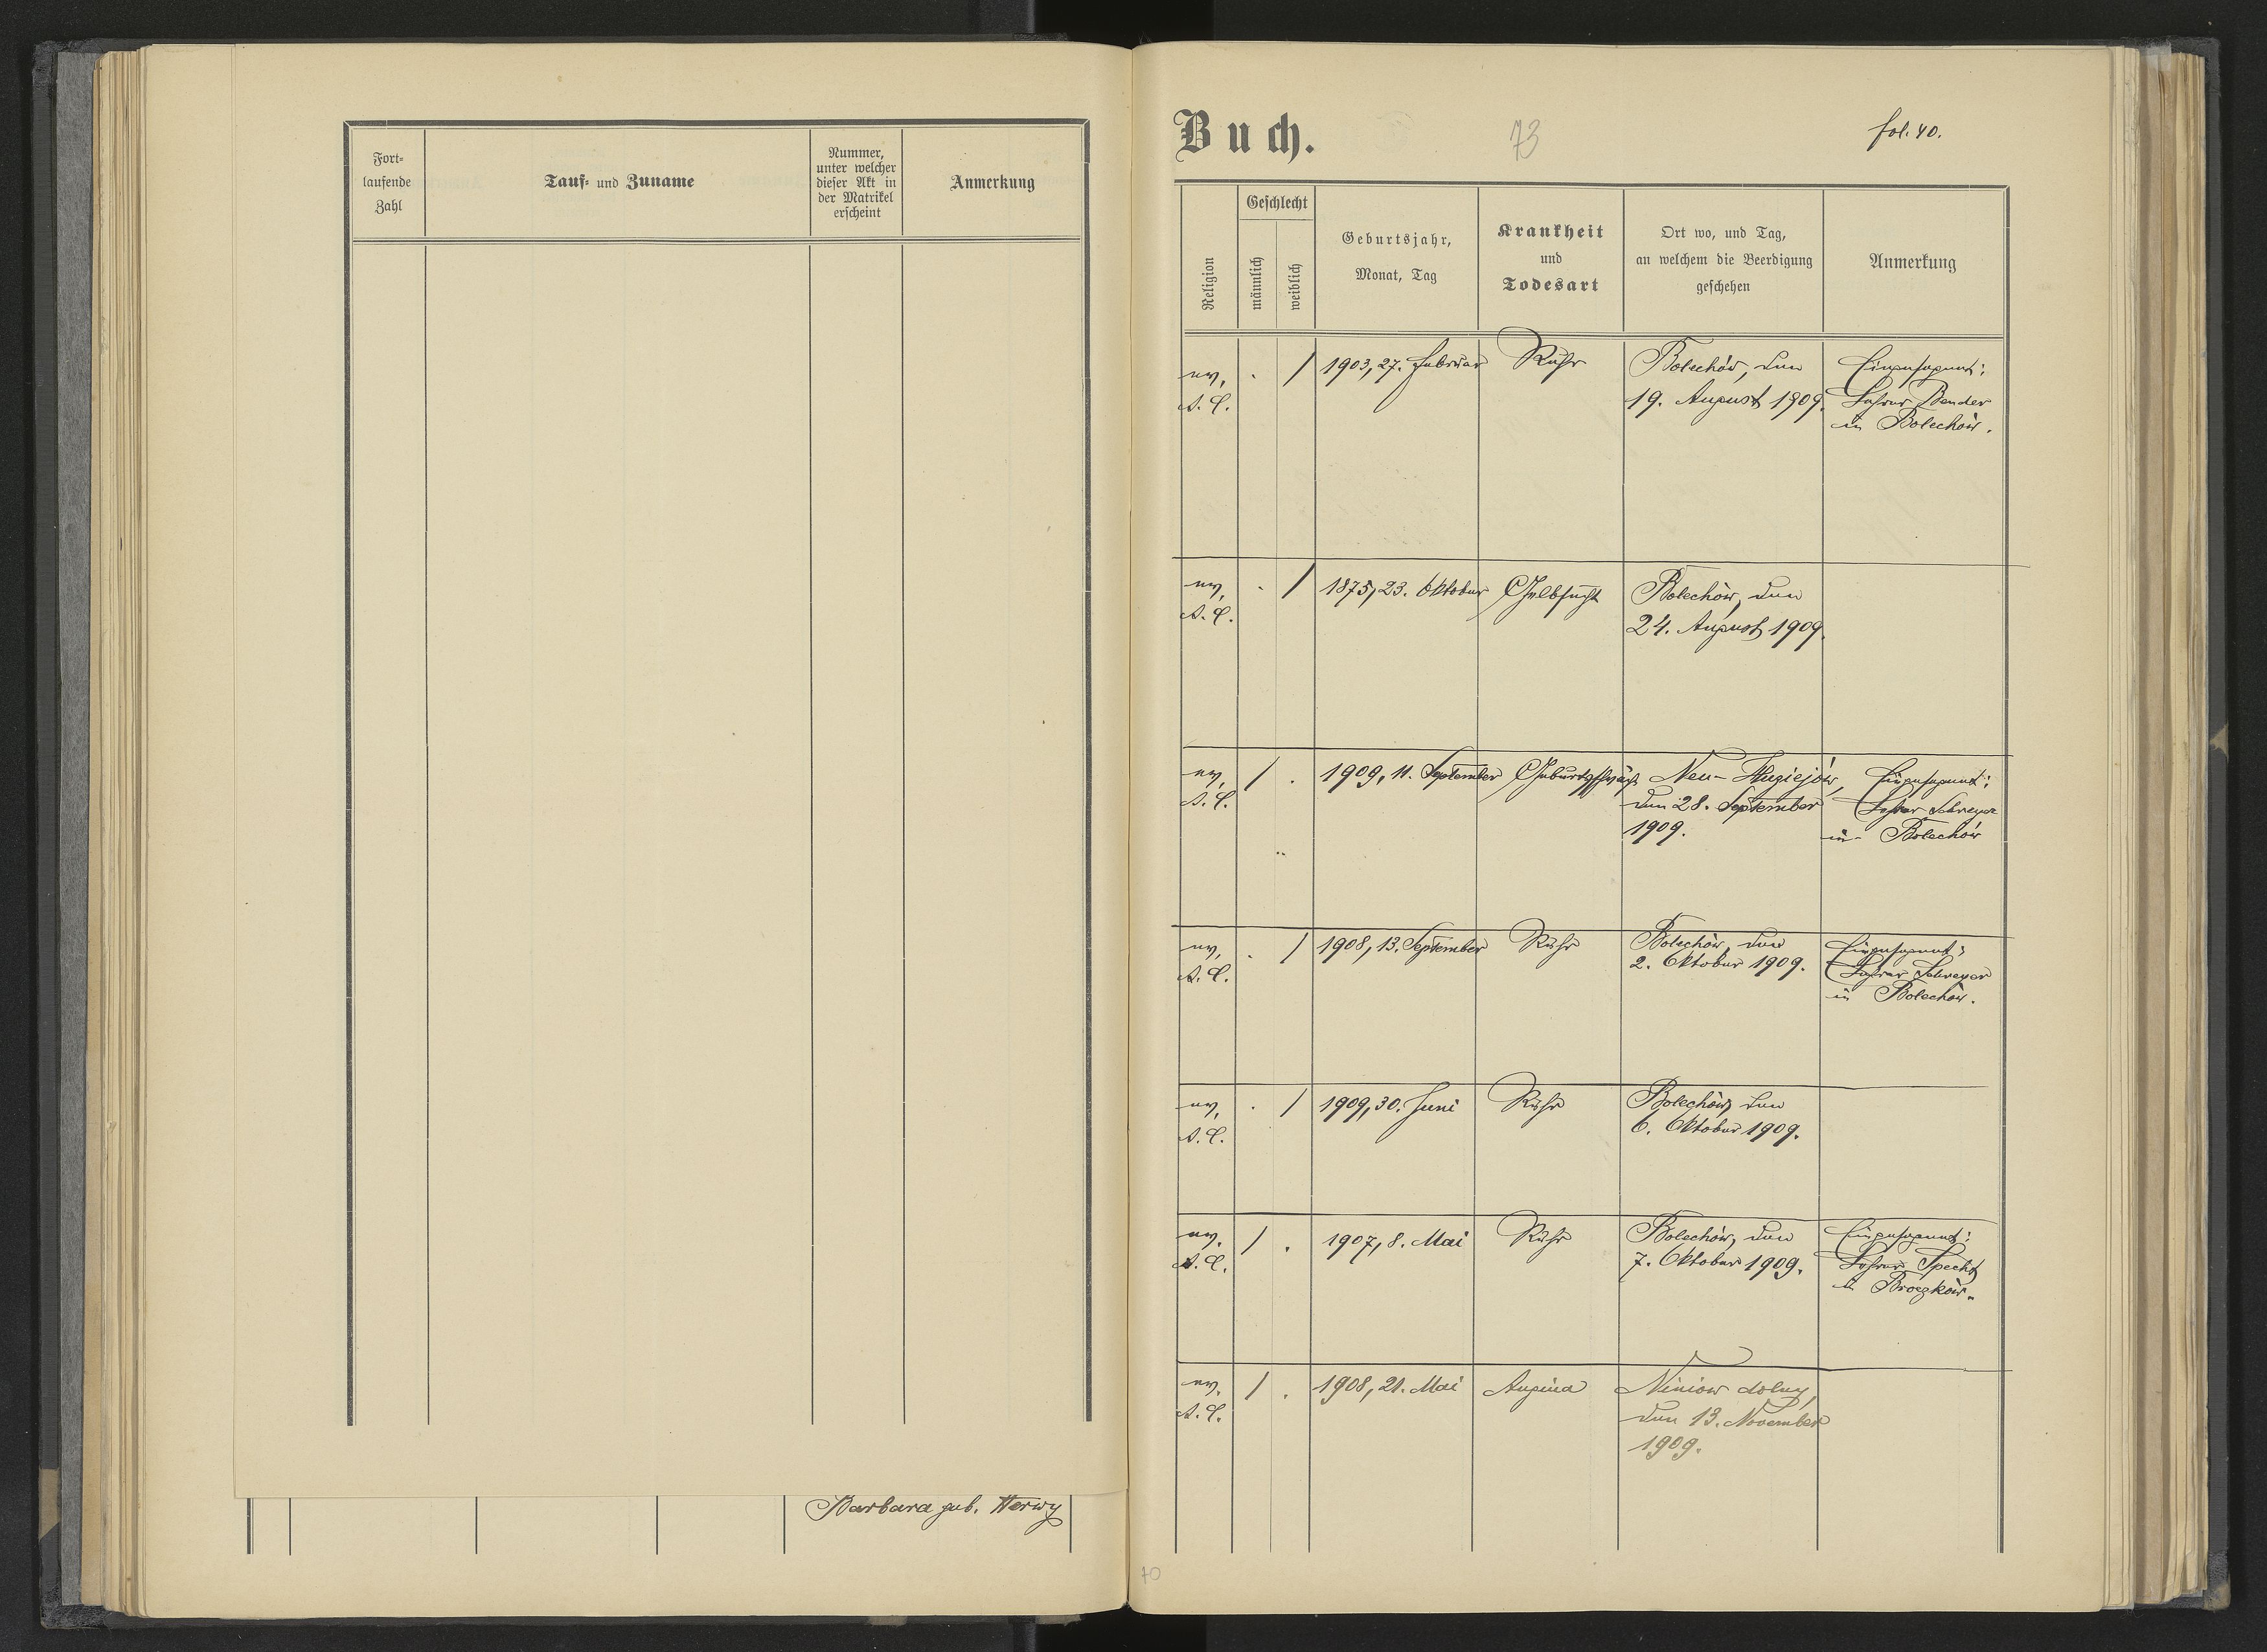 Fort-
laufende
Zahl
Tauf- und Zuname
Nummer,
unter welcher
dieser Akt in
der Matrikel
erscheint
Anmerkung
Barbara geb. Herwy
Buch.
73
fol. 40.
Religion
Geschlecht
männlich
weiblich
Geburtsjahr,
Monat, Tag
Krankheit
und
Todesart
Ort wo, und Tag,
an welchem die Beerdigung
geschehen
Anmerkung
ev.
A. C.
. /
1903, 27. Februar
Ruhr
Bolechów, den
19. August 1909.
Eingesegnet:
Lehrer Bender
in Bolechów.
ev.
A. C.
. /
1875, 23. Oktober
Gelbsucht
Bolechów, den
24. August 1909.
ev.
A. C.
/ .
1909, 11. September
Geburtsschwäche
Neu-
den 28. September
1909.
Eingesegnet:
Lehrer Schreyer
in Bolechów
ev.
A. C.
. /
1908, 13. September
Ruhr
Bolechów, den
2. Oktober 1909.
Eingesegnet:
Lehrer Schreyer
in Bolechów.
ev.
A. C.
. /
1909, 30. Juni
Ruhr
Bolechów, den
6. Oktober 1909.
ev.
A. C.
/ .
1907, 8. Mai
Ruhr
Bolechów, den
7. Oktober 1909.
Eingesegnet:
Lehrer Specht
in Broczków.
ev.
A. C.
/ .
1908, 21. Mai
Angina
Niniow dolny,
den 13. November
1909.
70